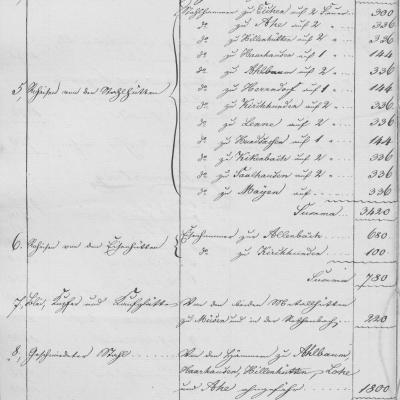 Stahlhammer zu Eichen auf 2 Feuer 300
do zu Ahe auf 2 " 336
do zu Hillenhütten auf 2 " 336
do zu Haarhausen auf 1 " 144
do zu Ahlbaum auf 2 " 336
5, von den Stahlhütten do zu Herrndorf auf 1 " 144
do zu Kirchhunden auf 2 " 336
do zu Lenne auf 2 " 336
do zu auf 1 " 144
do zu auf 2 " 336
do zu Saalhausen auf 2 " 336
do zu auf 336
Summa 3420
6. von den Eisenhütten Eisenhammer zur Allenbach 680
do zu Kirchhunden 100
Summa 780
7, Blei, Kupfer und Von den beiden Metallhütten
zu Müsen und in der 220
8, Geschmiedeter Stahl Von den Hämmern zu Ahlbaum
Haarhausen, Hillenhütten,
und Ahe ungefähr 1800